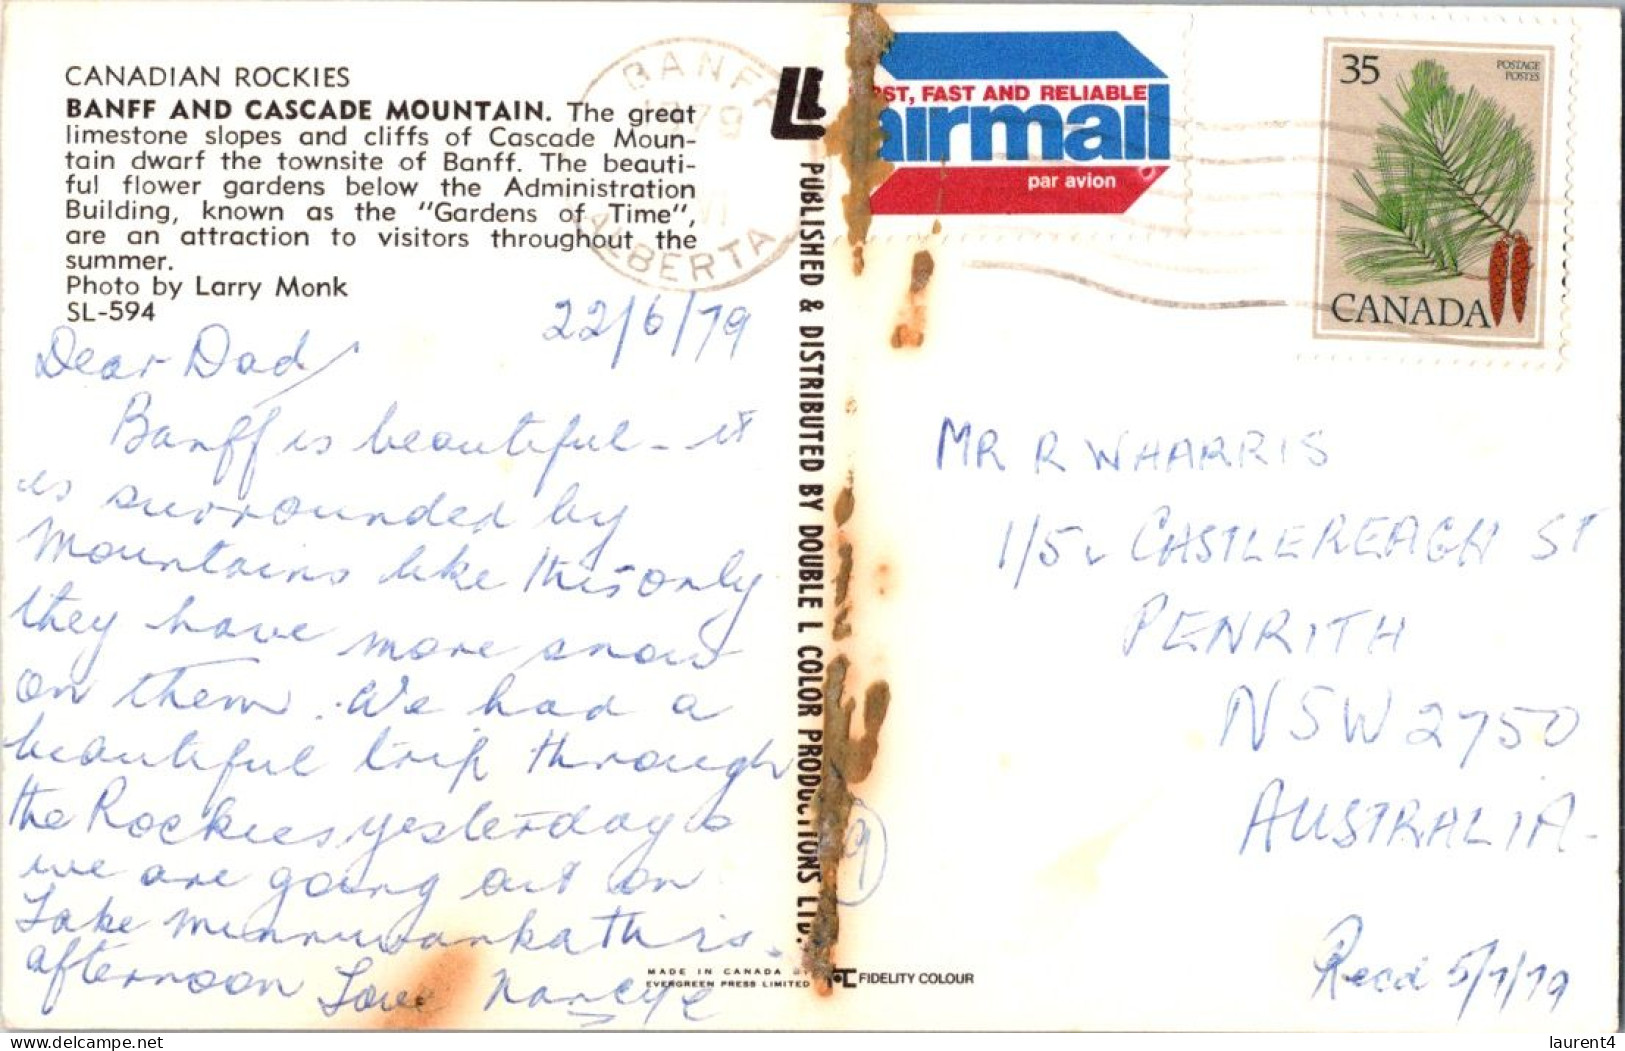 CANADIAN ROCKIES
BANFF AND CASCADE MOUNTAIN. The great
limestone slopes and cliffs of Cascade Moun-
tain dwarf the townsite of Banff. The beauti-
ful flower gardens below the Administration
Building, known as the "Gardens of Time",
are an attraction to visitors throughout the
summer.
Photo by Larry Monk
SL-594
22/6/79
Dear Dad,
Banff is beautiful - it
is surrounded by
Mountains like this only
they have more snow
on them. We had a
beautiful trip through
the Rockies yesterday &
we are going out on
Lake Minnewanka this.
afternoon Love
PUBLISHED & DISTRIBUTED BY DOUBLE L COLOR PRODUCTIONS LTD.
9
MADE IN CANADA BY
EVERGREEN PRESS LIMITED
FIDELITY COLOUR
BANFF
ALBERTA
FAST AND RELIABLE
airmail
par avion
35
POSTAGE
POSTES
CANADA
MR R W HARRIS
CASTLEREAGH ST
PENRITH
NSW 2750
AUSTRALIA-
Recd 5/7/79
delcampe.net
laurent4